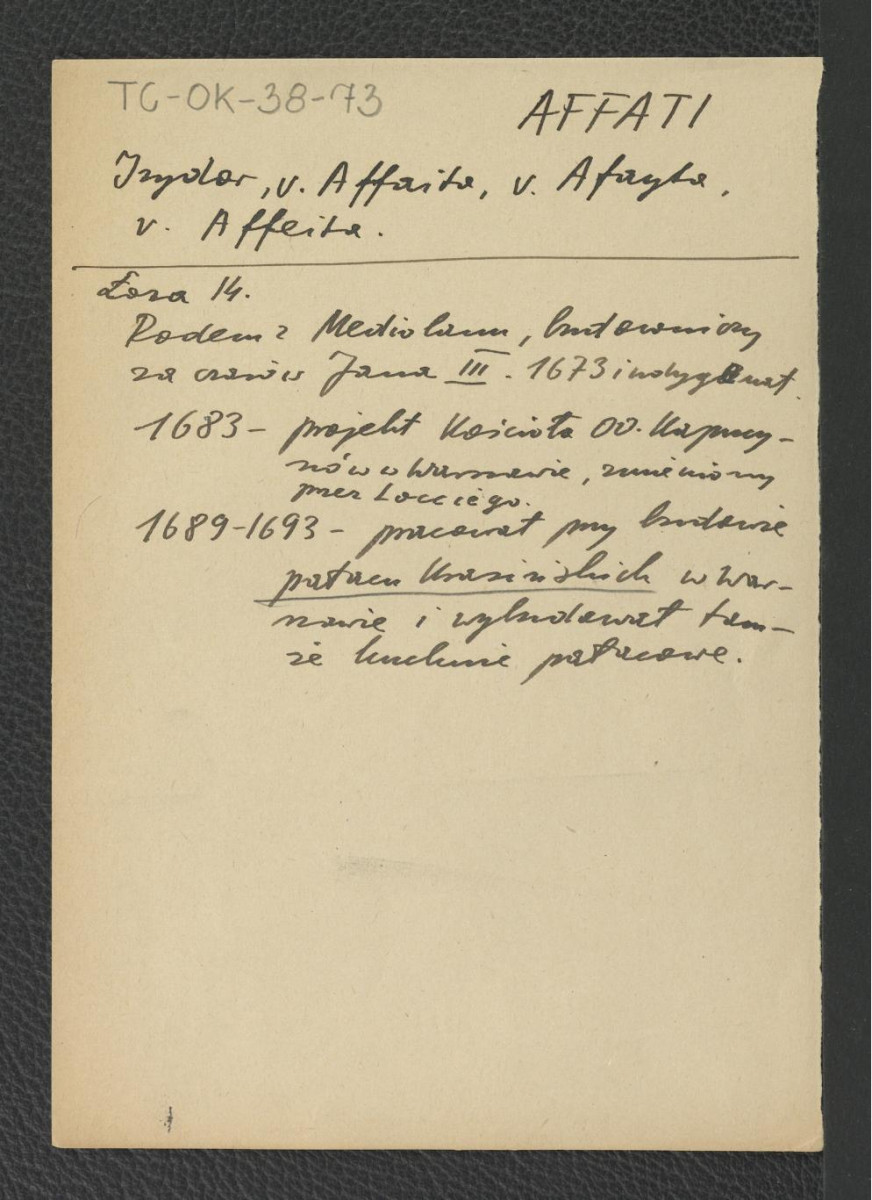 TC-OK-38-73
AFFATI
Izydor, v. Affaita, v. Afayta,
v. Affeita.
Łoza 14.
Rodem z Mediolanu, budowniczy
za czasów Jana III. 1673 indygenat.
1683 - projekt Kościoła OO. Kapucy-
nów w Warszawie, zmieniony
przez Locciego.
1689-1693 - pracował przy budowie
pałacu Krasińskich w War-
szawie i wybudował tam-
że kuchnie pałacowe.